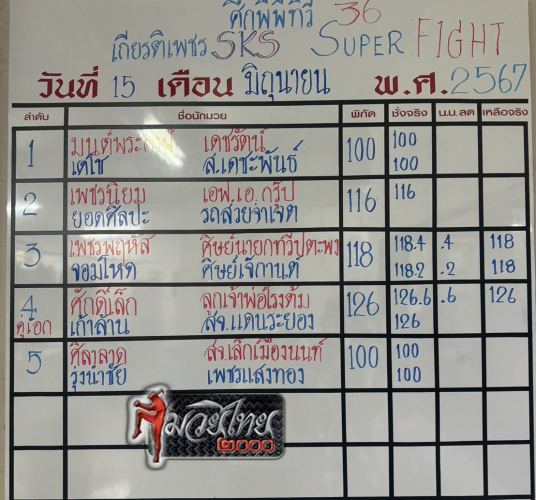 ศึกพีพีทีวี 36
เกียรติเพชร SKS SUPER FIGHT
วันที่ 15 เดือน มิถุนายน พ.ศ. 2567
ลำดับ ชื่อนักมวย พิกัด ชั่งจริง น.น.ลด เหลือจริง
1 มนต์พระ เดชรัตน์ 100 100
เตโช ส.เดชะพันธ์ 100
2 เพชรนิยม เอฟ.เอ.กรุ๊ป 116 116
ยอดศิลปะ รถสวยจ่าเจต
3 เพชรพฤหัส ศิษย์นายกทวีปตะพง 118 118.4 .4 118
จอมโหด ศิษย์เจ๊กานต์ 118.2 .2 118
4 ศักดิ์เล็ก ลูกเจ้าพ่อโรงต้ม 126 126.6 .6 126
คู่เอก เก้าล้าน สจ.แดนระยอง 126
5 ศิลาลาด สจ.เล็กเมืองนนท์ 100 100
รุ่งนำชัย เพชรแสงทอง 100
มวยไทย
๒๐๐๐